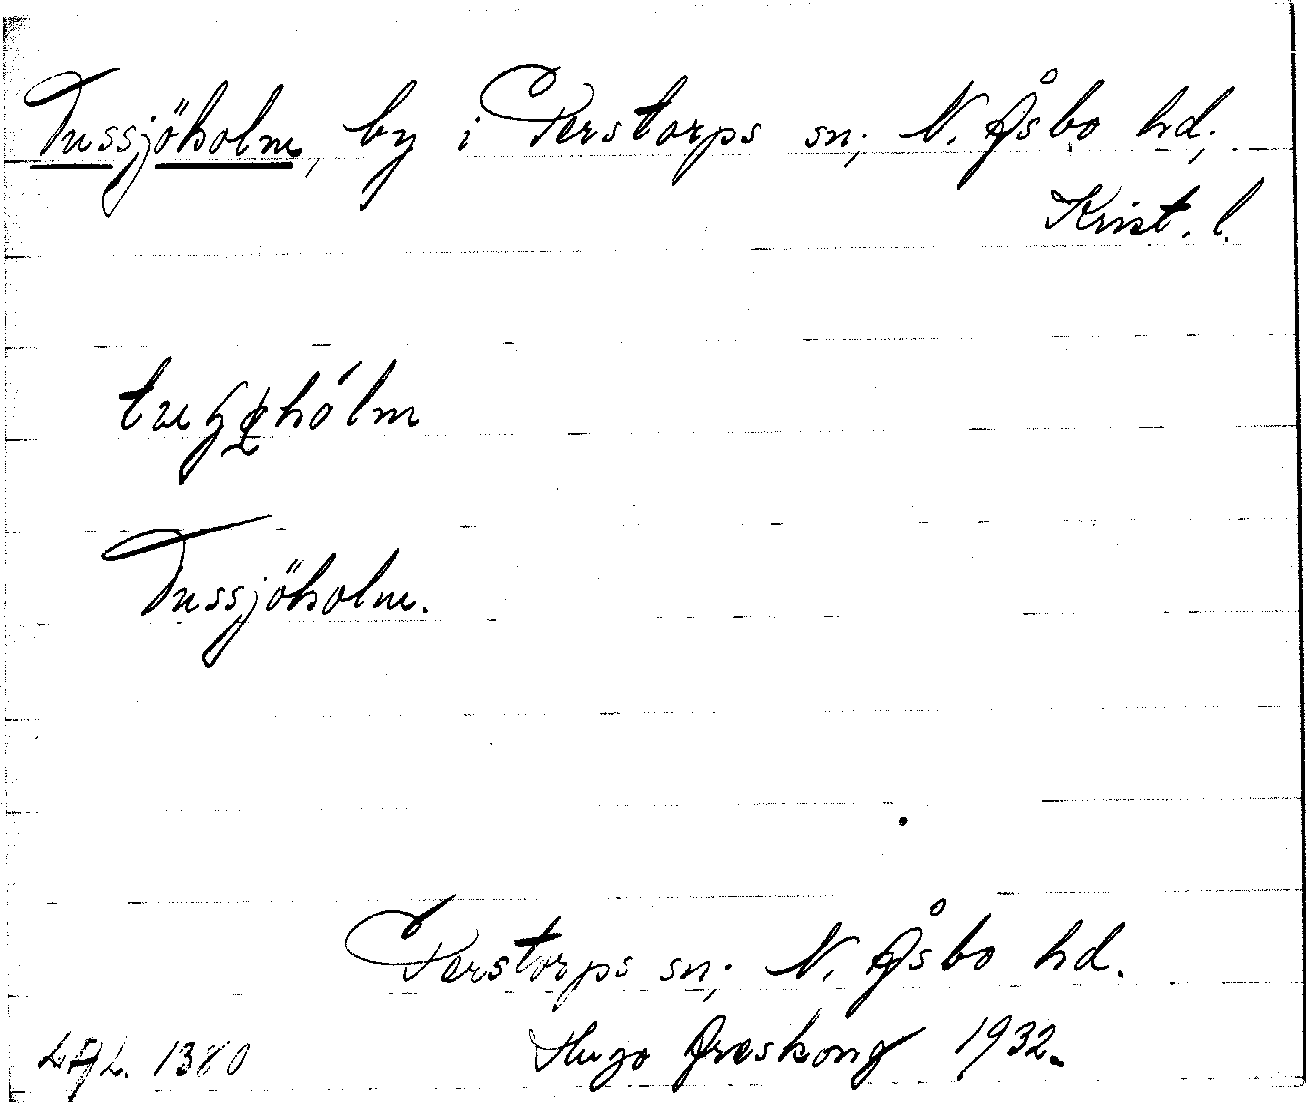 Tussjöholm, by i Perstorps sn, N. Åsbo hd,
Krist. l.
Tussjöholm.
Perstorps sn, N. Åsbo hd.
Hugo Areskoug 1932.
LAL. 1380